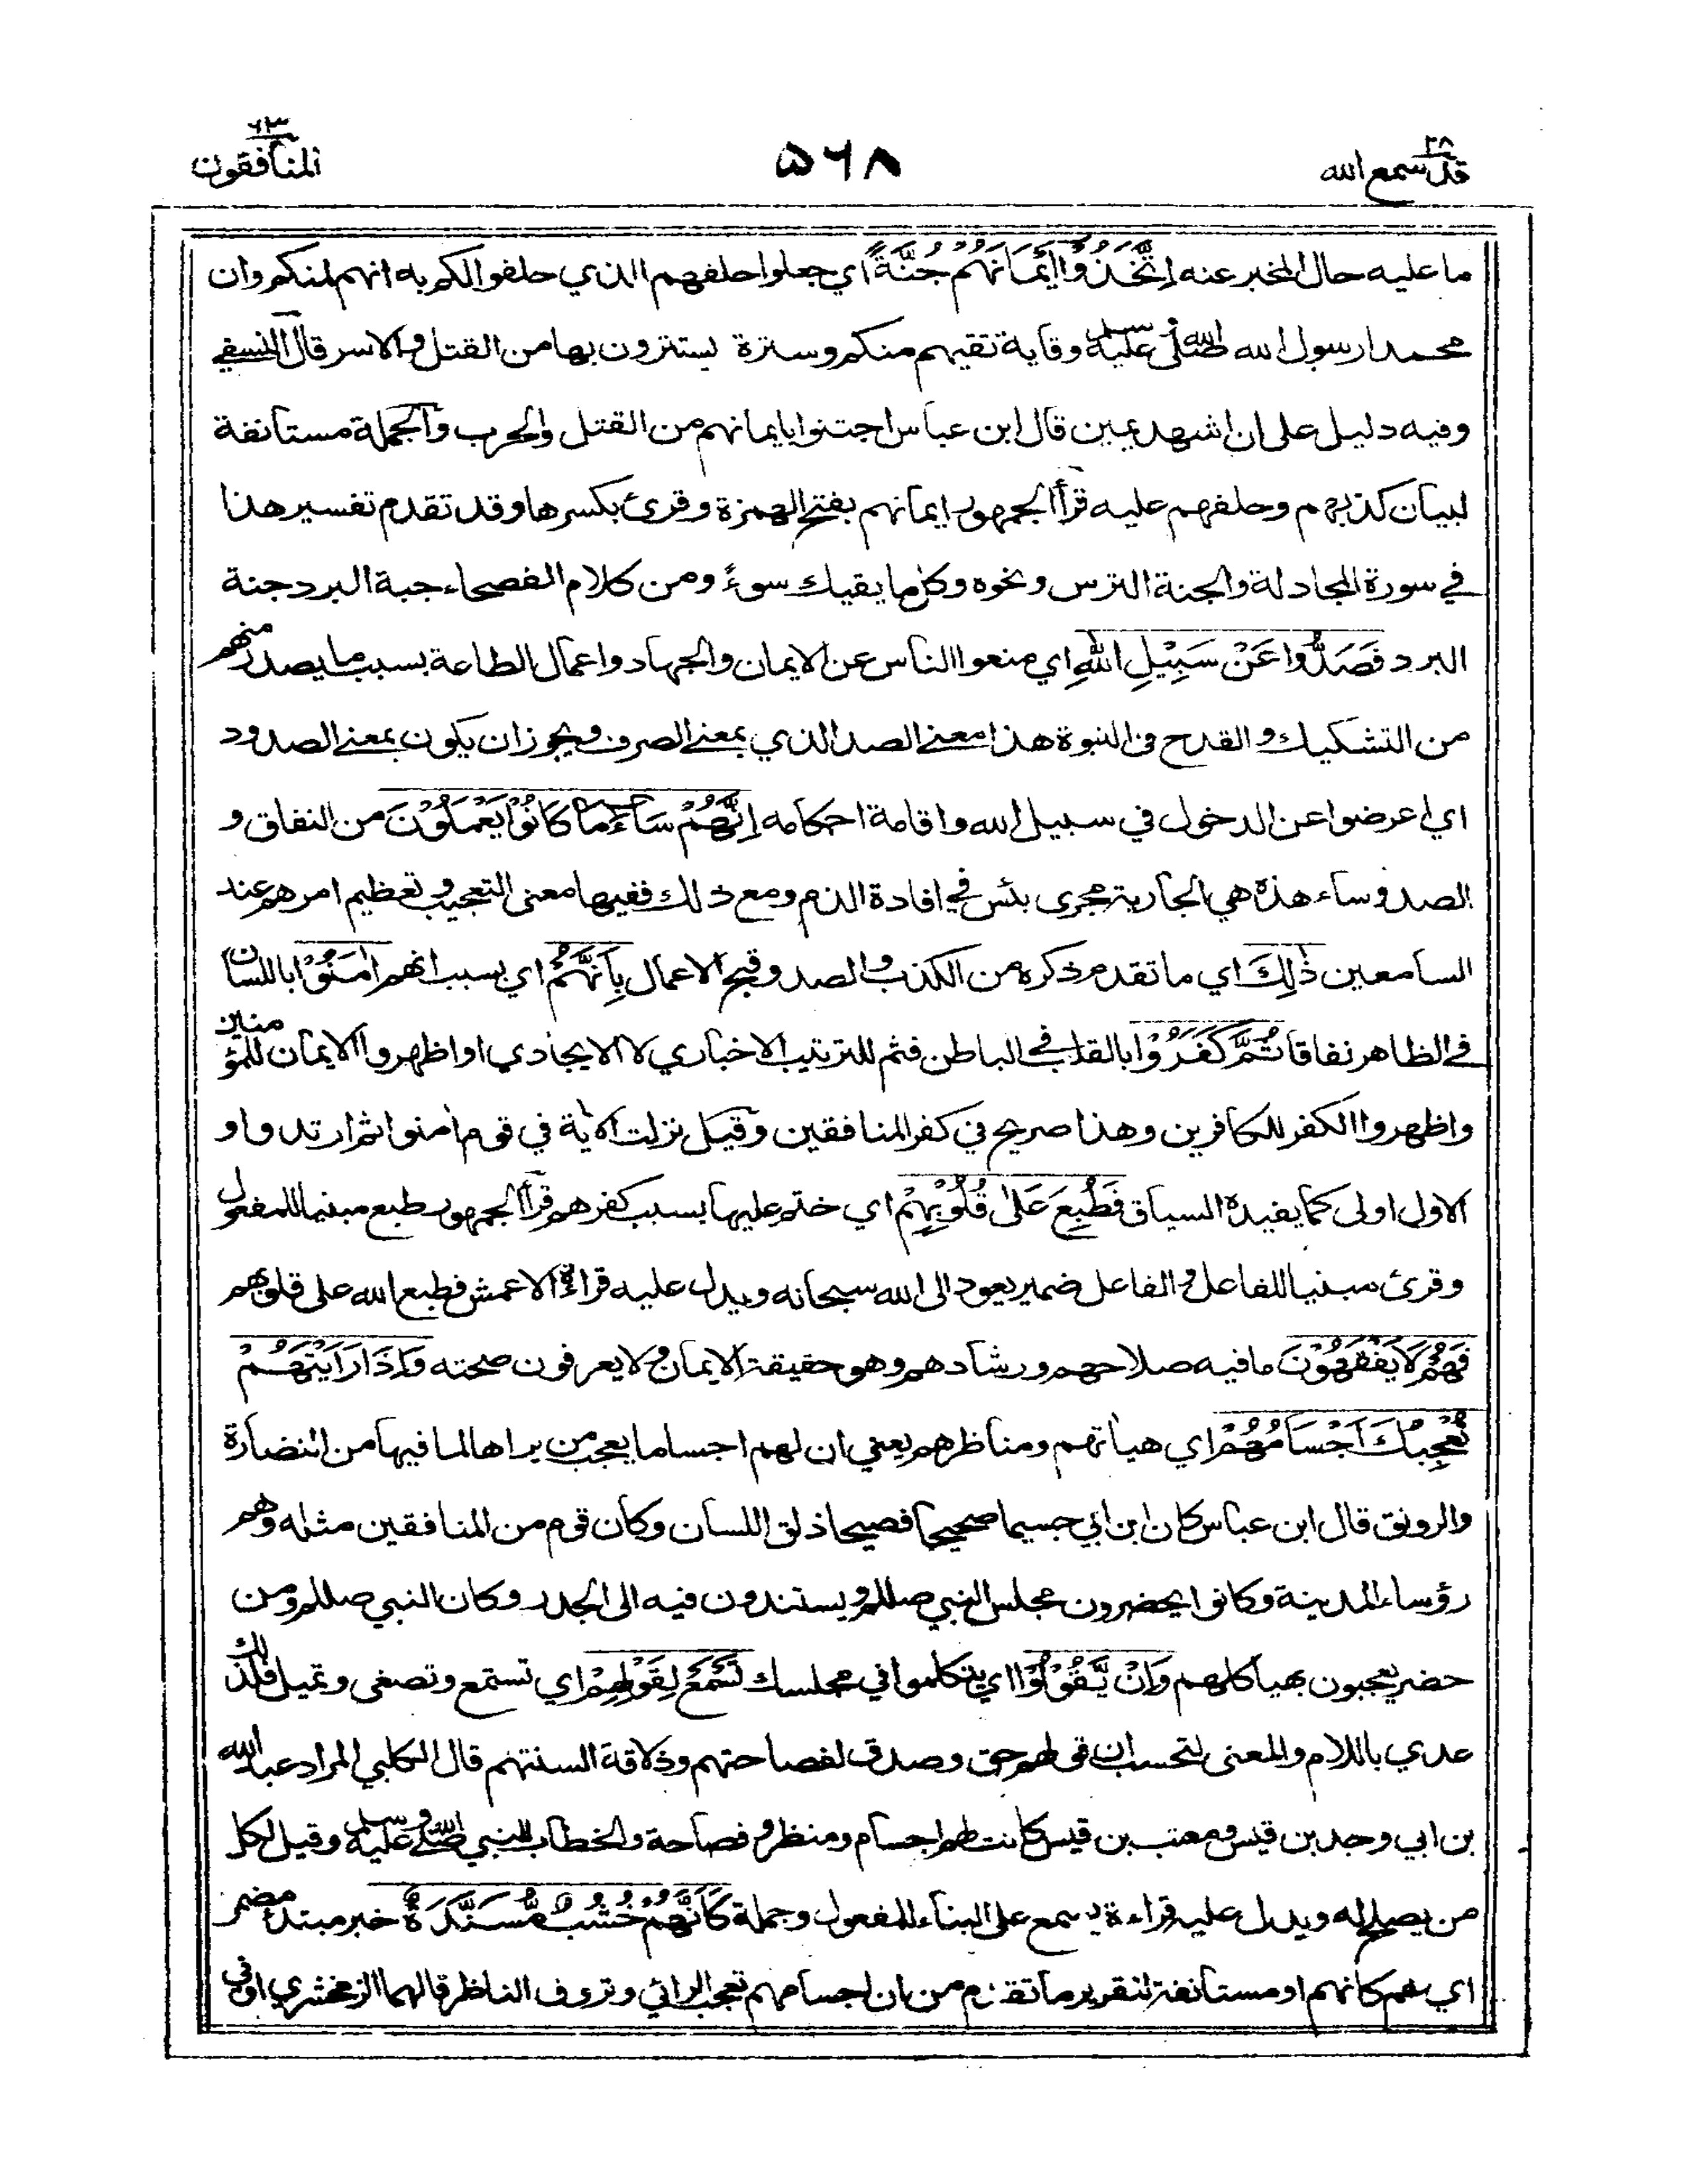 ٢٨
قد سمع الله
٥٦٨
٦٣
المنافقون
ما عليه حال المخبر عنه اِتَّخَذُوْٓا اَيْمَانَهُمْ جُنَّةً اي جعلوا حلفهم الذي حلفوا لكم به انهم لمنكم وان
محمدا رسول الله صلى الله عليه وسلم وقاية تقيهم منكم وسترة يستترون بها من القتل والاسر قال النسفي
وفيه دليل على ان اشهد يمين قال ابن عباس اجتنوا بايمانهم من القتل والحرب والجملة مستانفة
لبيان كذبهم وحلفهم عليه قرأ الجمهور ايمانهم بفتح الهمزة وقرئ بكسرها وقد تقدم تفسير هذا
في سورة المجادلة والجنة الترس ونحوه وكل ما يقيك سوءً ومن كلام الفصحاء جبة البرد جنة
البرد فَصَدُّوْا عَنْ سَبِيْلِ اللّٰهِ اي منعوا الناس عن الايمان والجهاد واعمال الطاعة بسبب ما يصدر منهم
من التشكيك والقدح في النبوة هذا معنى الصد الذي بمعنى الصرف ويجوز ان يكون بمعنى الصدود
اي اعرضوا عن الدخول في سبيل الله واقامة احكامه اِنَّهُمْ سَآءَ مَا كَانُوْا يَعْمَلُوْنَ من النفاق و
الصد وساء هذه هي الجارية مجرى بئس في افادة الذم ومع ذلك ففيها معنى التعجيب وتعظيم امرهم عند
السامعين ذٰلِكَ اي ما تقدم ذكره من الكذب والصد وقبح الاعمال بِاَنَّهُمْ اي بسبب انهم اٰمَنُوْا باللسان
في الظاهر نفاقا ثُمَّ كَفَرُوْا بالقلب في الباطن فثم للترتيب الاخباري لا الايجادي او اظهروا الايمان للمؤمنين
واظهروا الكفر للكافرين وهذا صريح في كفر المنافقين وقيل نزلت الاية في قوم اٰمنوا ثم ارتدوا و
الاول اولى كما يفيده السياق فَطُبِعَ عَلٰى قُلُوْبِهِمْ اي ختم عليها بسبب كفرهم قرأ الجمهور طبع مبنيا للمفعول
وقرئ مبنيا للفاعل والفاعل ضمير يعود الى الله سبحانه ويدل عليه قراءة الاعمش فطبع الله على قلوبهم
فَهُمْ لَا يَفْقَهُوْنَ ما فيه صلاحهم ورشادهم وهو حقيقة الايمان ولا يعرفون صحته وَاِذَا رَاَيْتَهُمْ
تُعْجِبُكَ اَجْسَامُهُمْ اي هيأتهم ومناظرهم يعني ان لهم اجساما يعجب من يراها لما فيها من النضارة
والرونق قال ابن عباس كان ابن ابي جسيما صحيحا فصيحا ذلق اللسان وكان قوم من المنافقين مثله وهم
رؤساء المدينة وكانوا يحضرون مجلس النبي صللم ويستندون فيه الى الجدر وكان النبي صللم ومن
حضر يعجبون بهياكلهم وَاِنْ يَّقُوْلُوْا اي يتكلموا في مجلسك تَسْمَعْ لِقَوْلِهِمْ اي تستمع وتصغى وتميل فلذلك
عدي باللام والمعنى لتحسب ان قولهم حق وصدق لفصاحتهم وذلاقة السنتهم قال الكلبي المراد عبد الله
بن ابي وجد بن قيس ومعتب بن قيس كانت لهم اجسام ومنظر وفصاحة والخطاب للنبي صلى الله عليه وسلم وقيل لكل
من يصلح له ويدل عليه قراءة يسمع على البناء للمفعول وجملة كَاَنَّهُمْ خُشُبٌ مُّسَنَّدَةٌ خبر مبتدء مضمر
اي هم كانهم او مستانفة لتقرير ما تقدم من ان اجسامهم تعجب الرائي وتروف الناظر قالهما الزمخشري او في